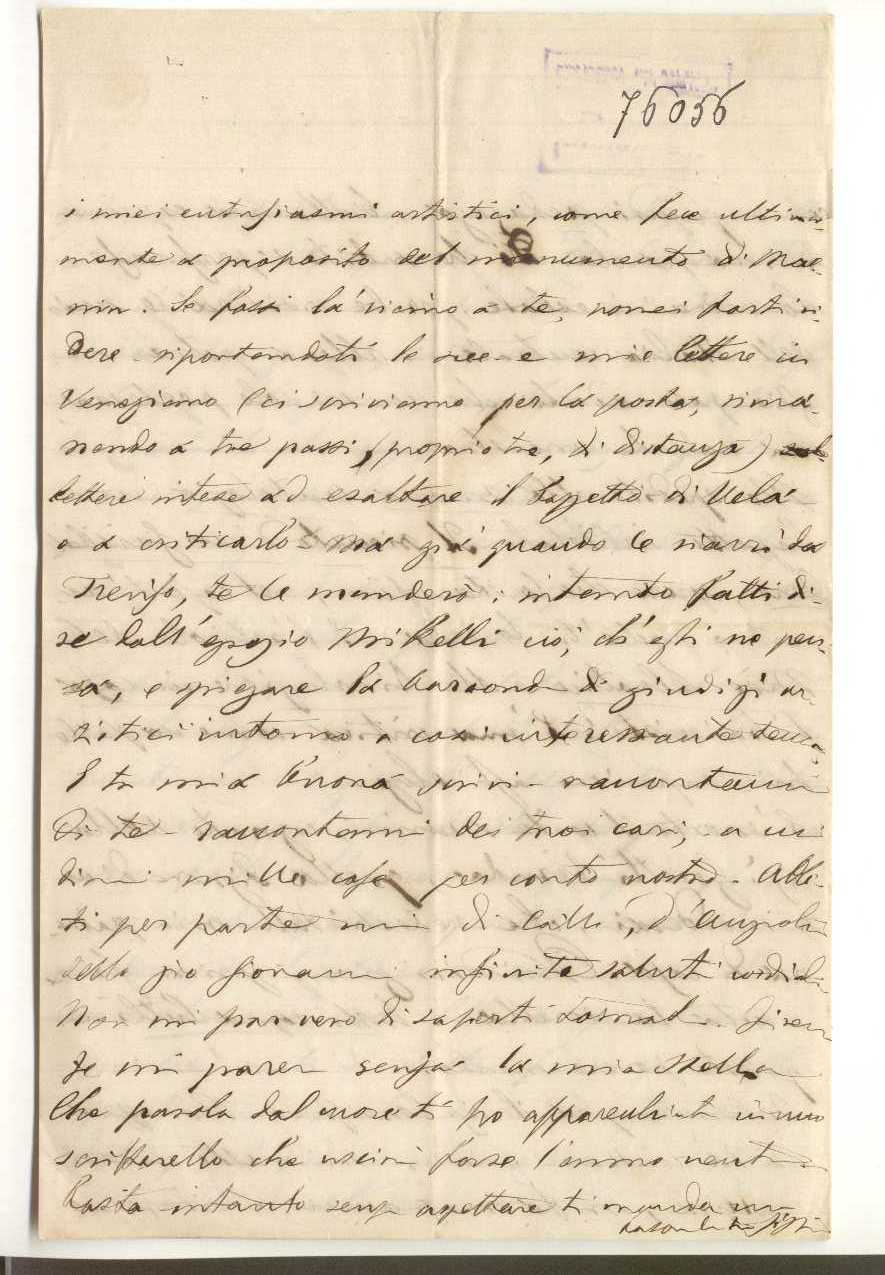 76056
i miei entusiasmi artistici, come fece ultima-
mente a proposito del monumento di Ma-
nin. Se fossi là vicino a te, vorrei farti ri-
dere riportandoti le sue e mie lettere in
Veneziano (ci scriviamo per la posta, rima-
nendo a tre passi, proprio tre, di distanza)
lettere intese ad esaltare il bozzetto di Vela
o a criticarlo - Ma già quando le riavrò da
Treviso, te le manderò; intanto fatti di-
re dall'egregio Mikelli ciò, ch'egli ne pen-
sa, e spiegare la baraonda di giudizi ar-
tistici intorno a così interessante tema.
E tu mia buona scrivi - raccontami
di te - raccontami dei tuoi cari, a cui
dirai mille cose per conto nostro. Abbi-
ti per parte mia di
dello zio Giovanni infinite saluti cordiali
Non mi par vero di saperti tornata. Firen-
ze mi parea senza la mia stella
Che parola dal cuore ti ho apparecchiata in uno
scrittarello che uscirà forse l'anno vent
Basta intanto senza aspettare ti manda un